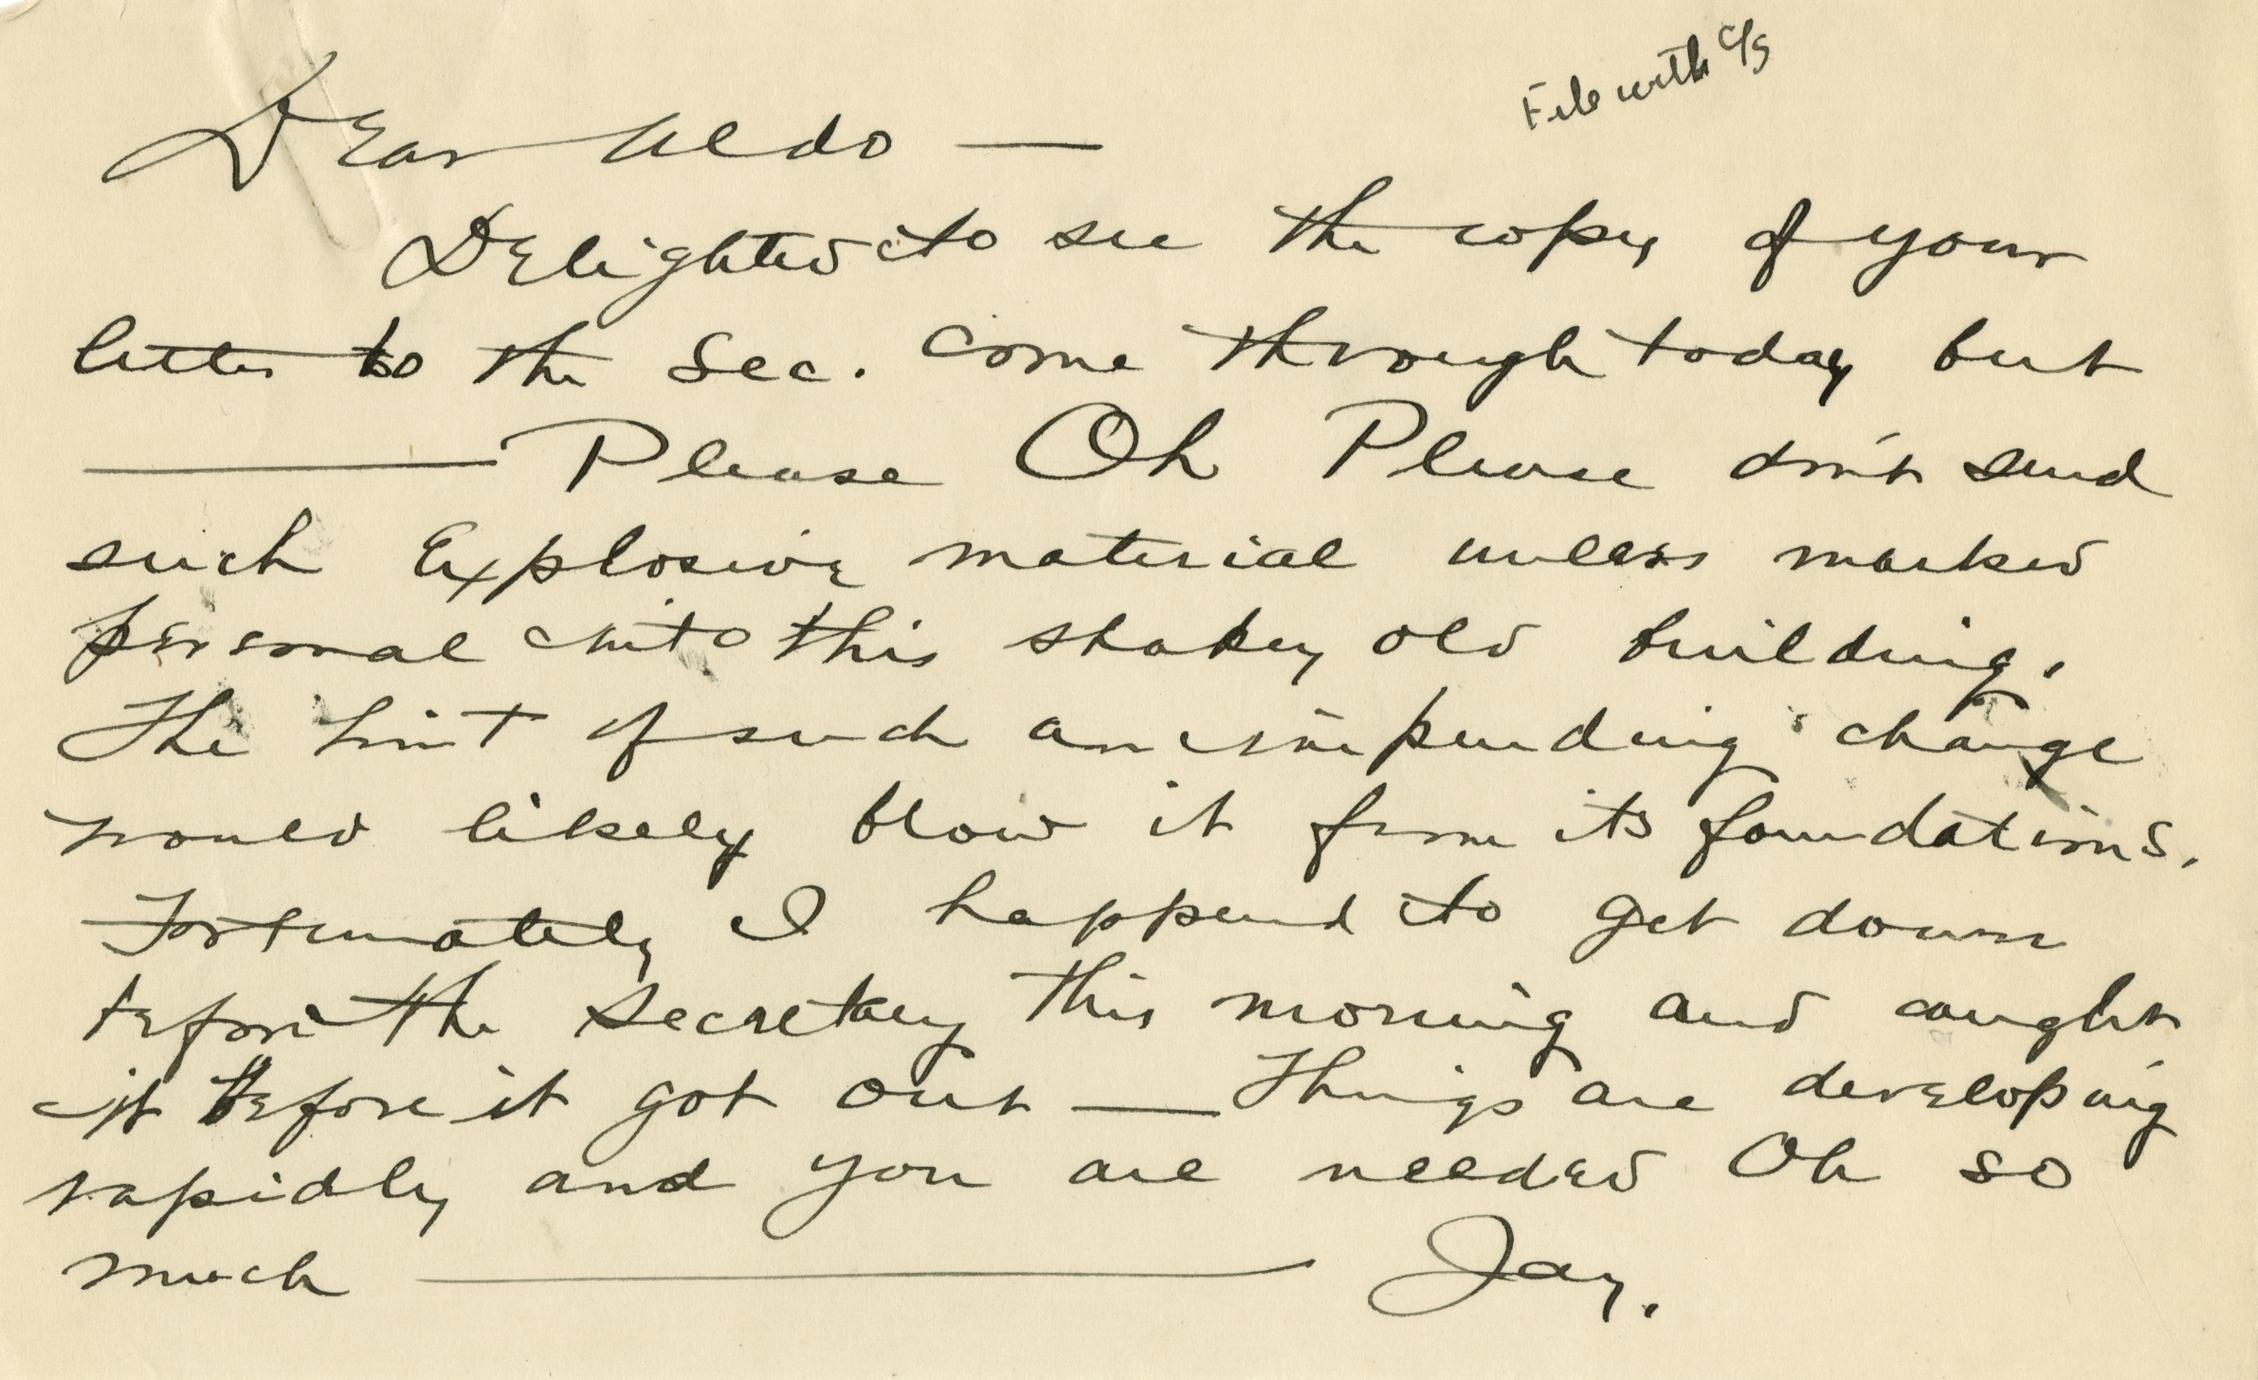 File with c/s
Dear Aldo —
Delighted to see the copy of your
letter to the Sec. come through today but
— Please Oh Please don't send
such Explosive material unless marked
personal into this shakey old building.
The hint of such an impending change
would likely blow it from its foundations.
Fortunately I happend to get down
before the Secretary this morning and caught
it before it got out — Things are developing
rapidly and you are needed Oh so
much — Jay.